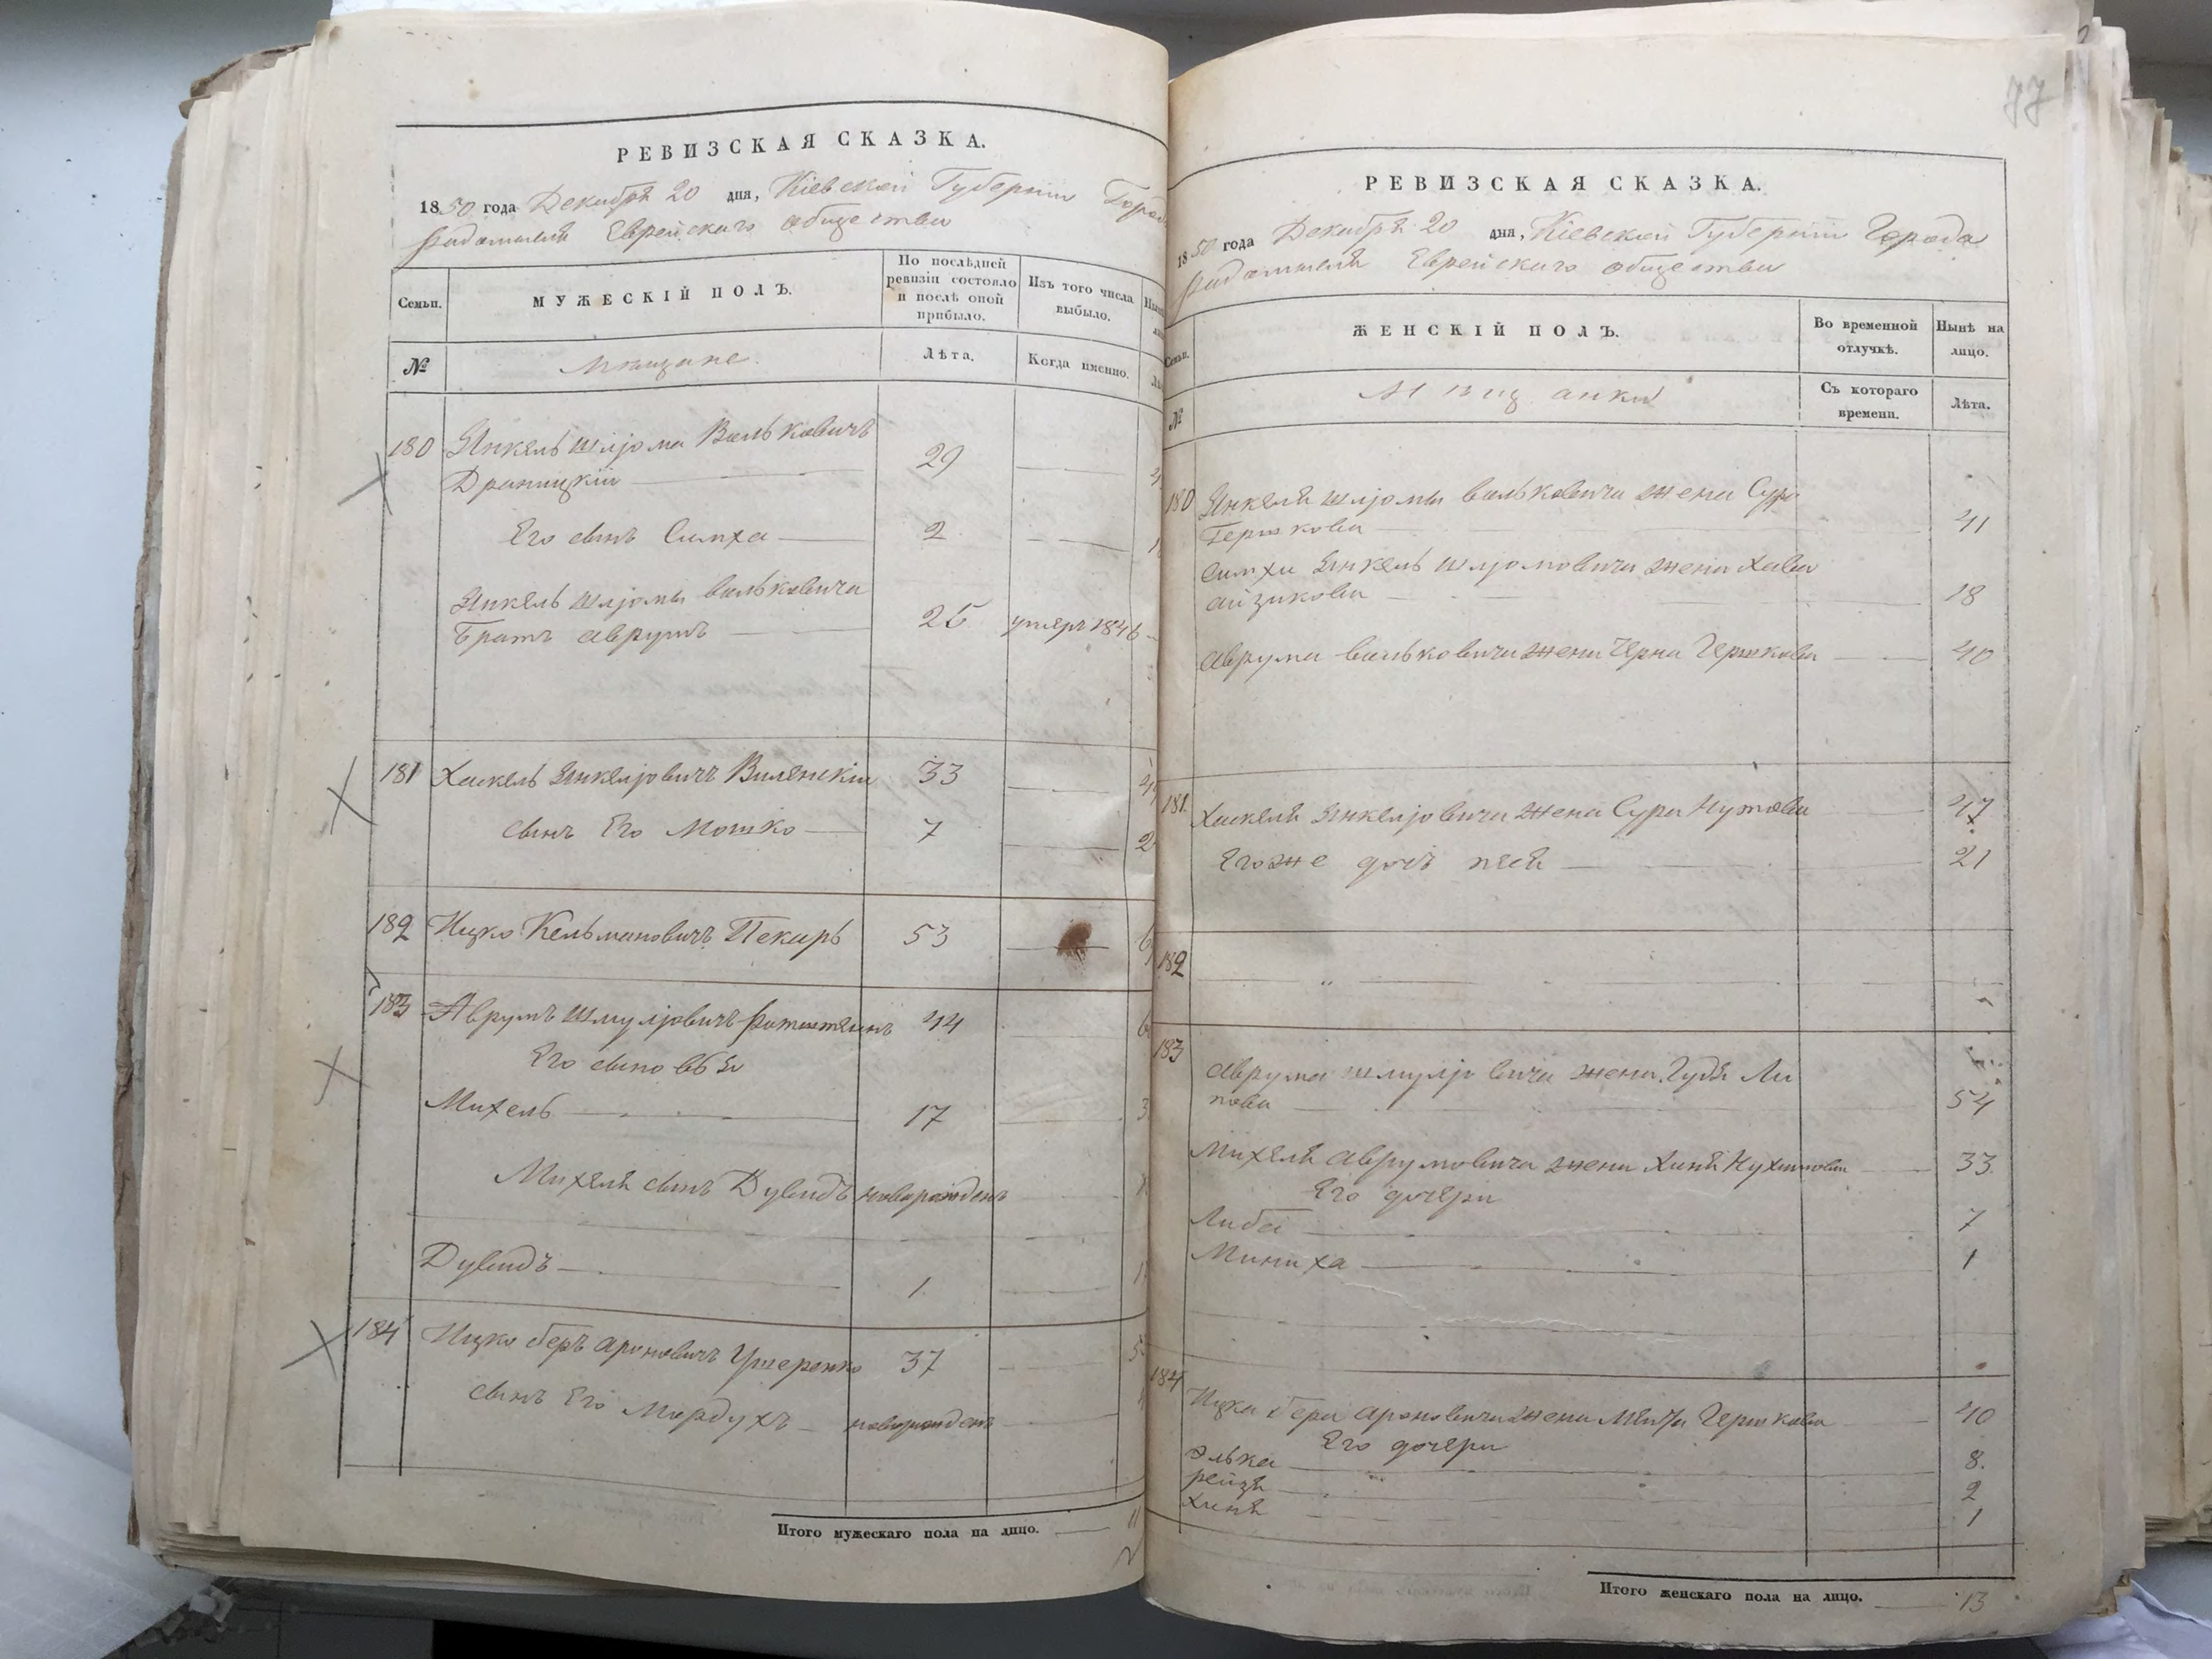 77
РЕВИЗСКАЯ СКАЗКА.
1850 года Декабря 20 дня, Кіевской Губерніи Город
Радомысля Еврейскаго общества
Семьи.
МУЖЕСКІЙ ПОЛЪ.
По послѣдней ревизіи состояло и послѣ оной прибыло.
Изъ того числа выбыло.
№
Мѣщане
Лѣта.
Когда именно.
180 Янкель Шліома Вольковичъ
Драницкій 29
Его сынъ Симха 2
Янкель Шліомы Вольковича
Братъ Аврумъ 25 умеръ 1846
181 Хаскель Янкеліовичъ Виленскій 33
сынъ Его Мошко 7
182 Ицко Кельмановичъ Пекарь 53
183 Аврумъ Шмуліовичъ 44
Его сыновья
Михель 17
Михеля сынъ Дувидъ новорожденъ
Дувидъ 1
184 Ицко Беръ Ароновичъ Ушеренко 37
сынъ Его Мордухъ новорожденъ
Итого мужескаго пола на лицо. 11
РЕВИЗСКАЯ СКАЗКА.
1850 года Декабря 20 дня, Кіевской Губерніи Города
Радомысля Еврейскаго общества
Семьи.
ЖЕНСКІЙ ПОЛЪ.
Во временной отлучкѣ.
Нынѣ на лицо.
№
Мѣщанки
Съ котораго времени.
Лѣта.
180 Янкеля Шліомы Вольковича жена Сура
Гершкова 41
Симхи Янкель Шліомовича жена Хава
Айзикова 18
Аврума Вольковича жена Черна Гершкова 40
181. Хаскеля Янкеліовича жена Сура Нутова 47
Егоже дочь Песя 21
182 "
183
Аврума Шмуліовича жена Гудя Ли
пова 54
Михеля Аврумовича жена Хиня Нухимова 33
Его дочери
Либа 7
Миниха 1
184
Ицка Бера Ароновича жена Гершкова 40
Его дочери
Элька 8.
Рейзя 2
Хиня 1
Итого женскаго пола на лицо. 13